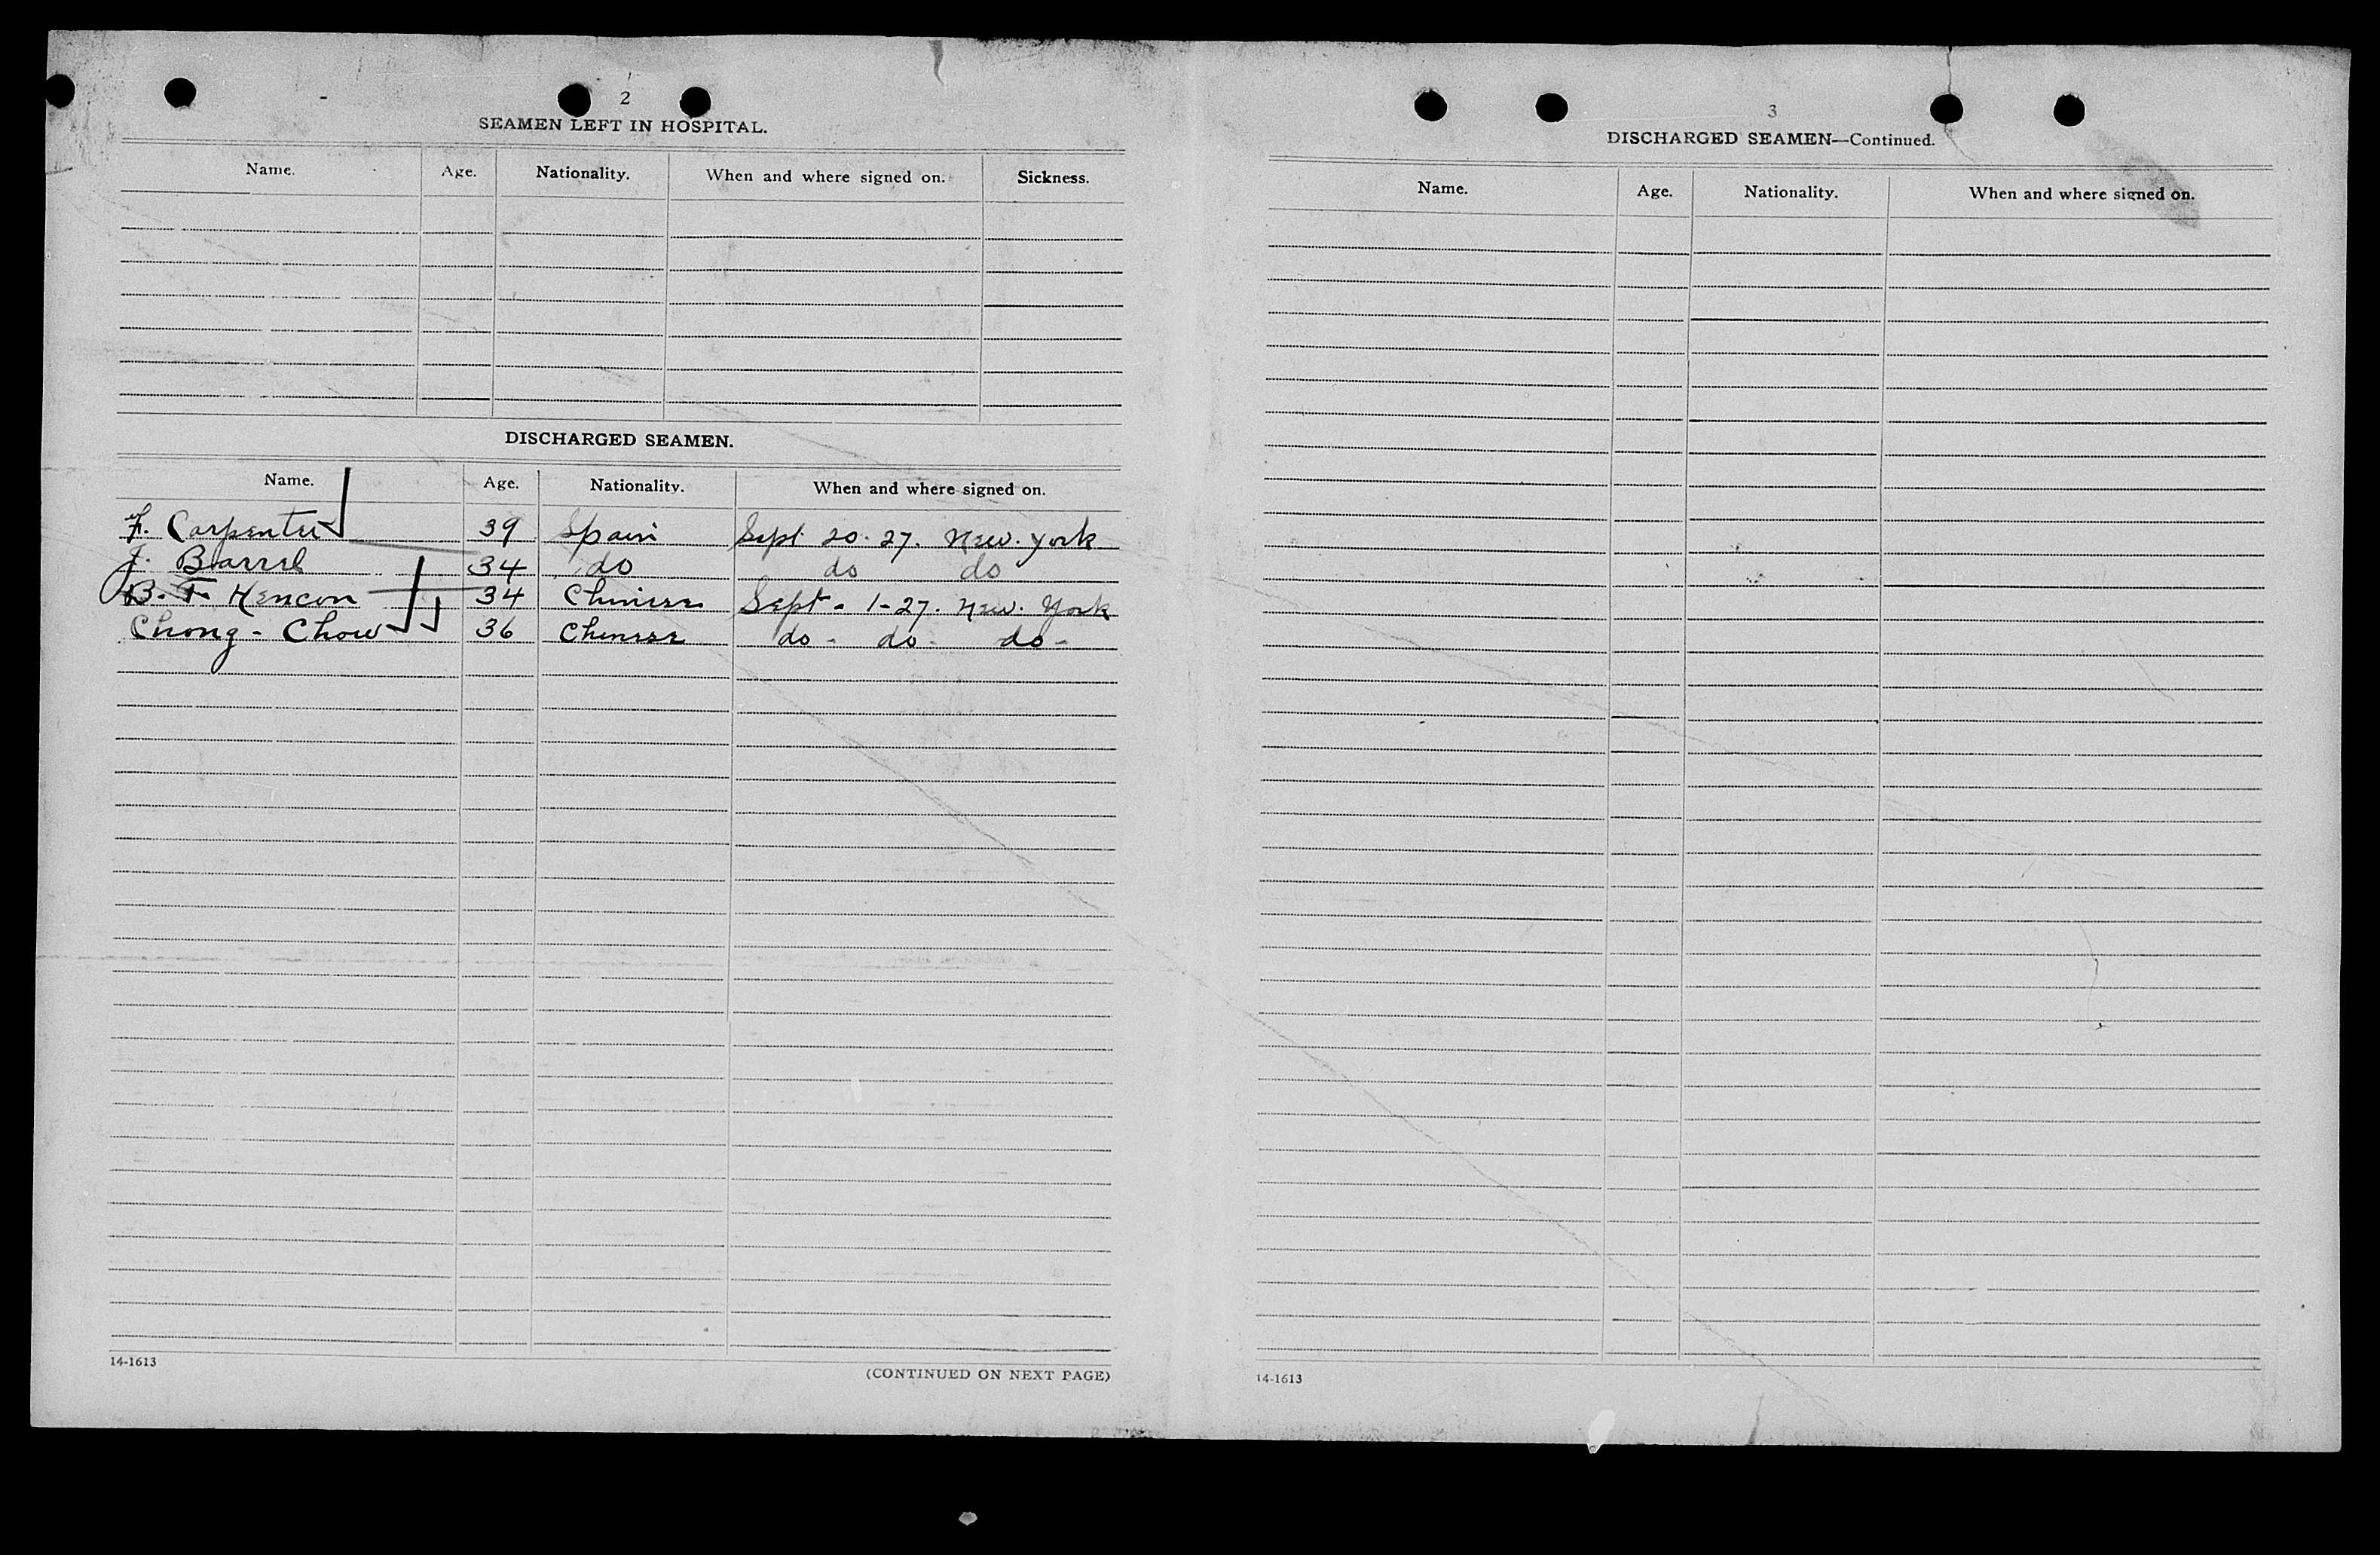 2
SEAMEN LEFT IN HOSPITAL.
Name. Age. Nationality. When and where signed on. Sickness.
DISCHARGED SEAMEN.
Name. Age. Nationality. When and where signed on.
F. Carpenter 39 Spain Sept. 20. 27. New. York
J. Barrel 34 do do do
B. T. Hencon 34 Chinese Sept - 1-27. New. York
Chong - Chow 36 Chinese do - do - do -
14-1613
(CONTINUED ON NEXT PAGE)
3
DISCHARGED SEAMEN—Continued.
Name. Age. Nationality. When and where signed on.
14-1613